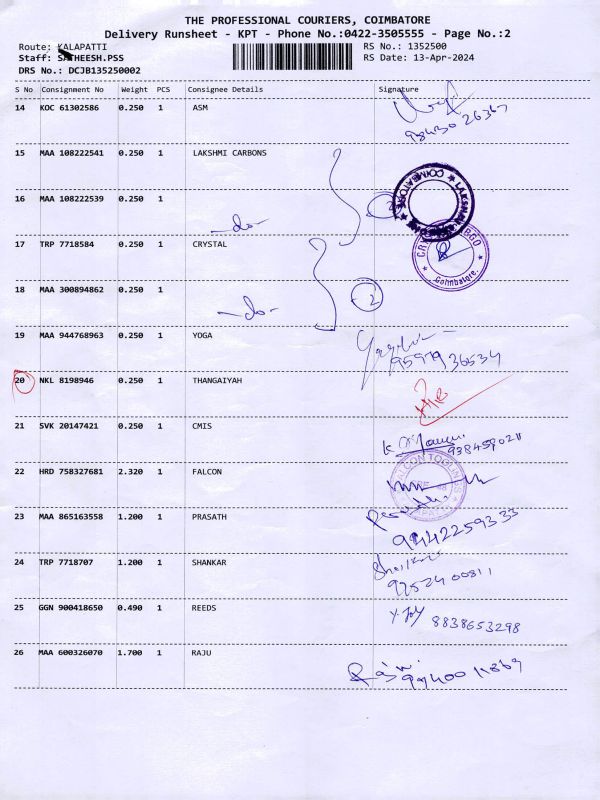 THE PROFESSIONAL COURIERS, COIMBATORE
Delivery Runsheet - KPT - Phone No.:0422-3505555 - Page No.:2
Route: KALAPATTI
RS No.: 1352500
Staff: SATHEESH.PSS
RS Date: 13-Apr-2024
DRS No.: DCJB135250002
S No Consignment No Weight PCS Consignee Details Signature
14 KOC 61302586 0.250 1 ASM
98430 26367
15 MAA 108222541 0.250 1 LAKSHMI CARBONS
16 MAA 108222539 0.250 1
-do- 2
COIMBATORE
17 TRP 7718584 0.250 1 CRYSTAL
Coimbatore.
18 MAA 300894862 0.250 1
-do- 2
19 MAA 944768963 0.250 1 YOGA
20 NKL 8198946 0.250 1 THANGAIYAH
21 SVK 20147421 0.250 1 CMIS
22 HRD 758327681 2.320 1 FALCON
FALCON TOOLINGS
23 MAA 865163558 1.200 1 PRASATH
9442259333
24 TRP 7718707 1.200 1 SHANKAR
97524 00811
25 GGN 900418650 0.490 1 REEDS
8838653298
26 MAA 600326070 1.700 1 RAJU